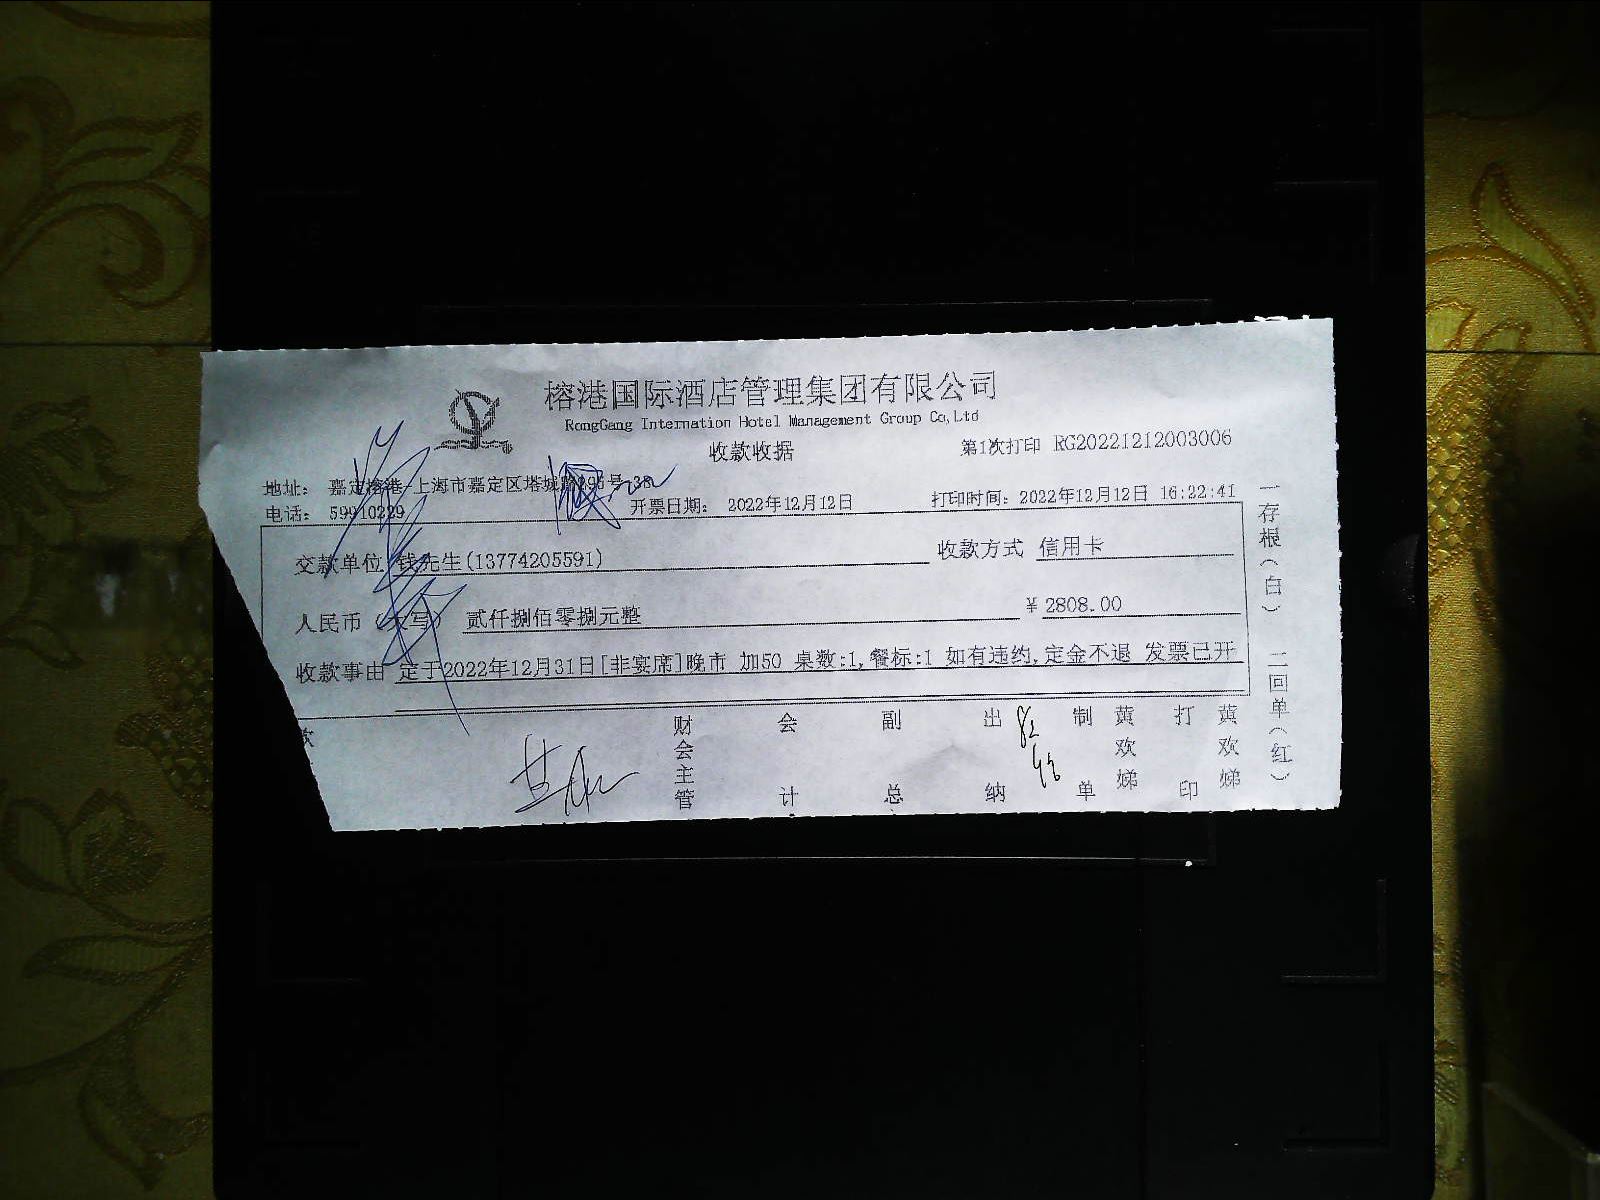 榕港国际酒店管理集团有限公司
RongGang Internation Hotel Management Group Co,Ltd
收款收据
第1次打印 RG20221212003006
地址： 嘉定榕港-上海市嘉定区塔城路295号-38
电话： 59910229
开票日期： 2022年12月12日
打印时间：2022年12月12日 16:22:41
交款单位 钱先生(13774205591)
收款方式 信用卡
人民币（大写） 贰仟捌佰零捌元整
￥2808.00
收款事由 定于2022年12月31日[非宴席]晚市 加50 桌数:1,餐标:1 如有违约,定金不退 发票已开
款
财会主管
会计
副总
出纳
制单
黄欢娣
打印
黄欢娣
一存根（白） 二回单（红）